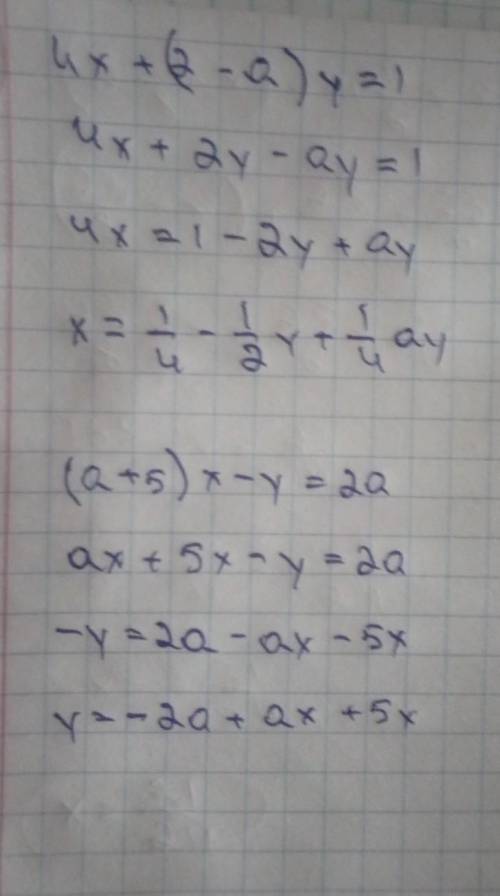 4x + (2 - a) y = 1
4x + 2y - ay = 1
4x = 1 - 2y + ay
x = 1/4 - 1/2 y + 1/4 ay
(a + 5) x - y = 2a
ax + 5x - y = 2a
-y = 2a - ax - 5x
y = -2a + ax + 5x